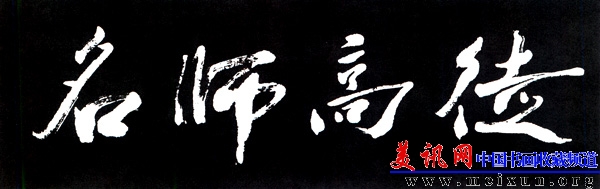 名师高徒
美讯网 中国书画收藏频道
www.meixun.org